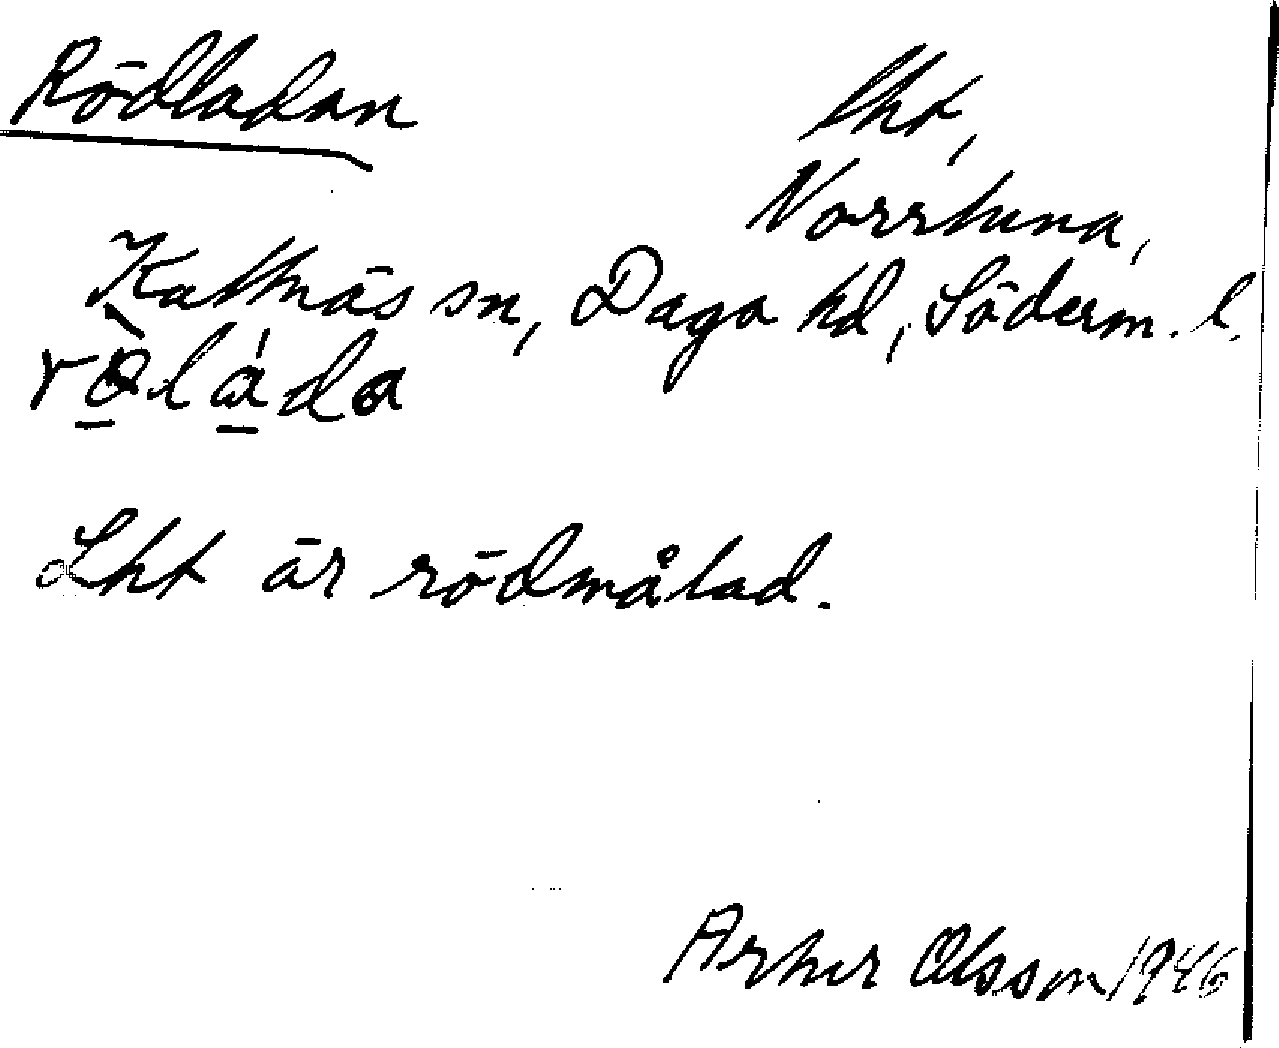 Rödladan
lht,
Norrtuna,
Kattnäs sn, Daga hd, Söderm. l.
rö̀láda
Lht är rödmålad.
Arthur Olsson 1946